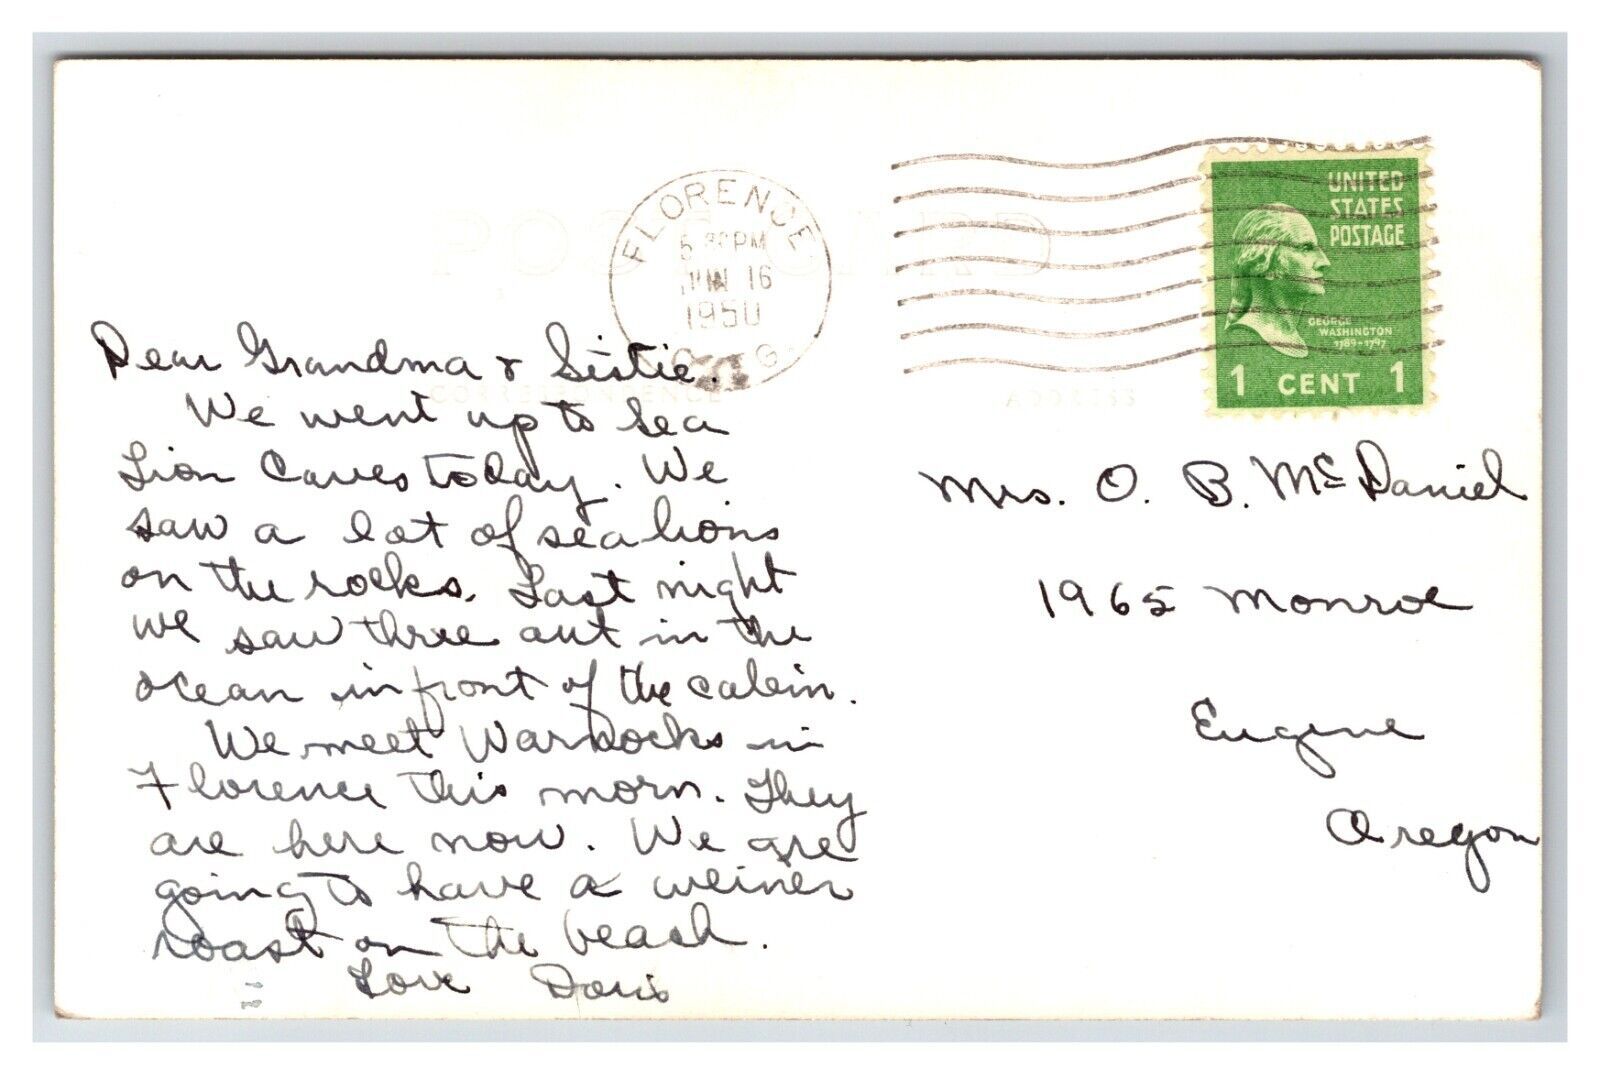 POST CARD
FLORENCE
5 30 PM
JUN 16
1950
OREG.
UNITED
STATES
POSTAGE
GEORGE
WASHINGTON
1789-1797
1 CENT 1
CORRESPONDENCE
ADDRESS
Dear Grandma & Sistie.
We went up to Sea
Lion Caves today. We
saw a lot of sea lions
on the rocks. Last night
we saw three out in the
ocean in front of the cabin.
We meet Warnocks in
Florence this morn. They
are here now. We are
going to have a weiner
roast on the beach.
Love Doris
Mrs. O. B. McDaniel
1965 Monroe
Eugene
Oregon